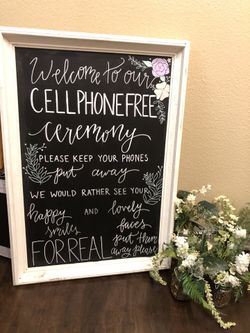 Welcome to our
CELLPHONE FREE
ceremony
PLEASE KEEP YOUR PHONES
put away
WE WOULD RATHER SEE YOUR
happy AND lovely
smiles faces
FORREAL put them
away please